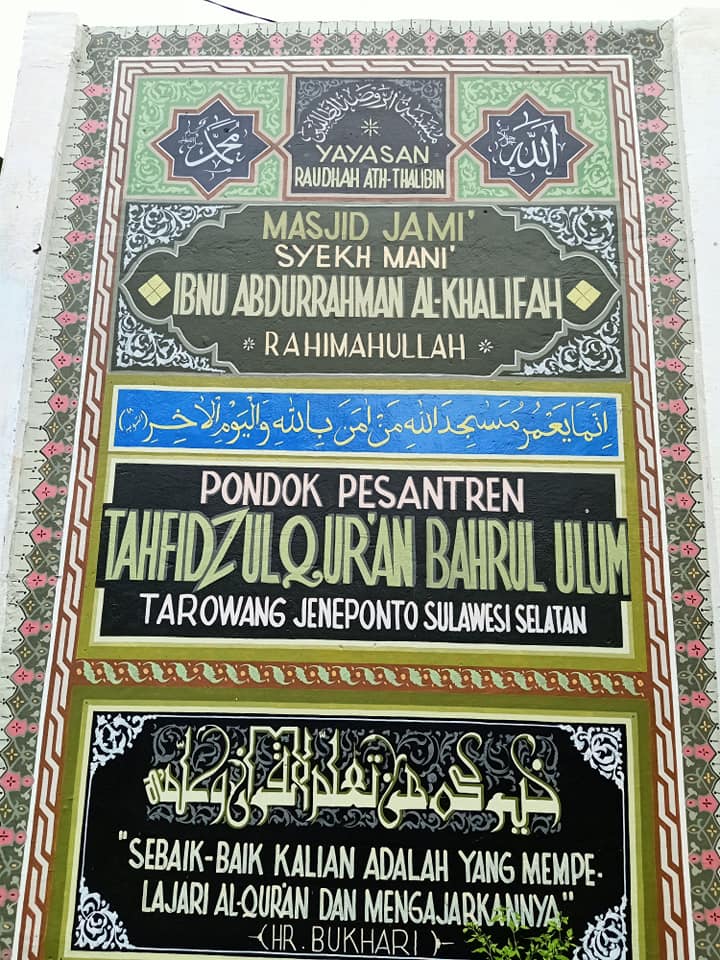 محمد
مؤسسة الروضة الطالبين
الله
YAYASAN
RAUDHAH ATH-THALIBIN
MASJID JAMI'
SYEKH MANI'
IBNU ABDURRAHMAN AL-KHALIFAH
RAHIMAHULLAH
اِنَّمَا يَعْمُرُ مَسٰجِدَ اللهِ مَنْ اٰمَنَ بِاللهِ وَالْيَوْمِ الْاٰخِرِ
PONDOK PESANTREN
TAHFIDZUL QUR'AN BAHRUL ULUM
TAROWANG JENEPONTO SULAWESI SELATAN
خيركم من تعلم القرآن وعلمه
"SEBAIK-BAIK KALIAN ADALAH YANG MEMPE-
LAJARI AL-QUR'AN DAN MENGAJARKANNYA"
(HR. BUKHARI)